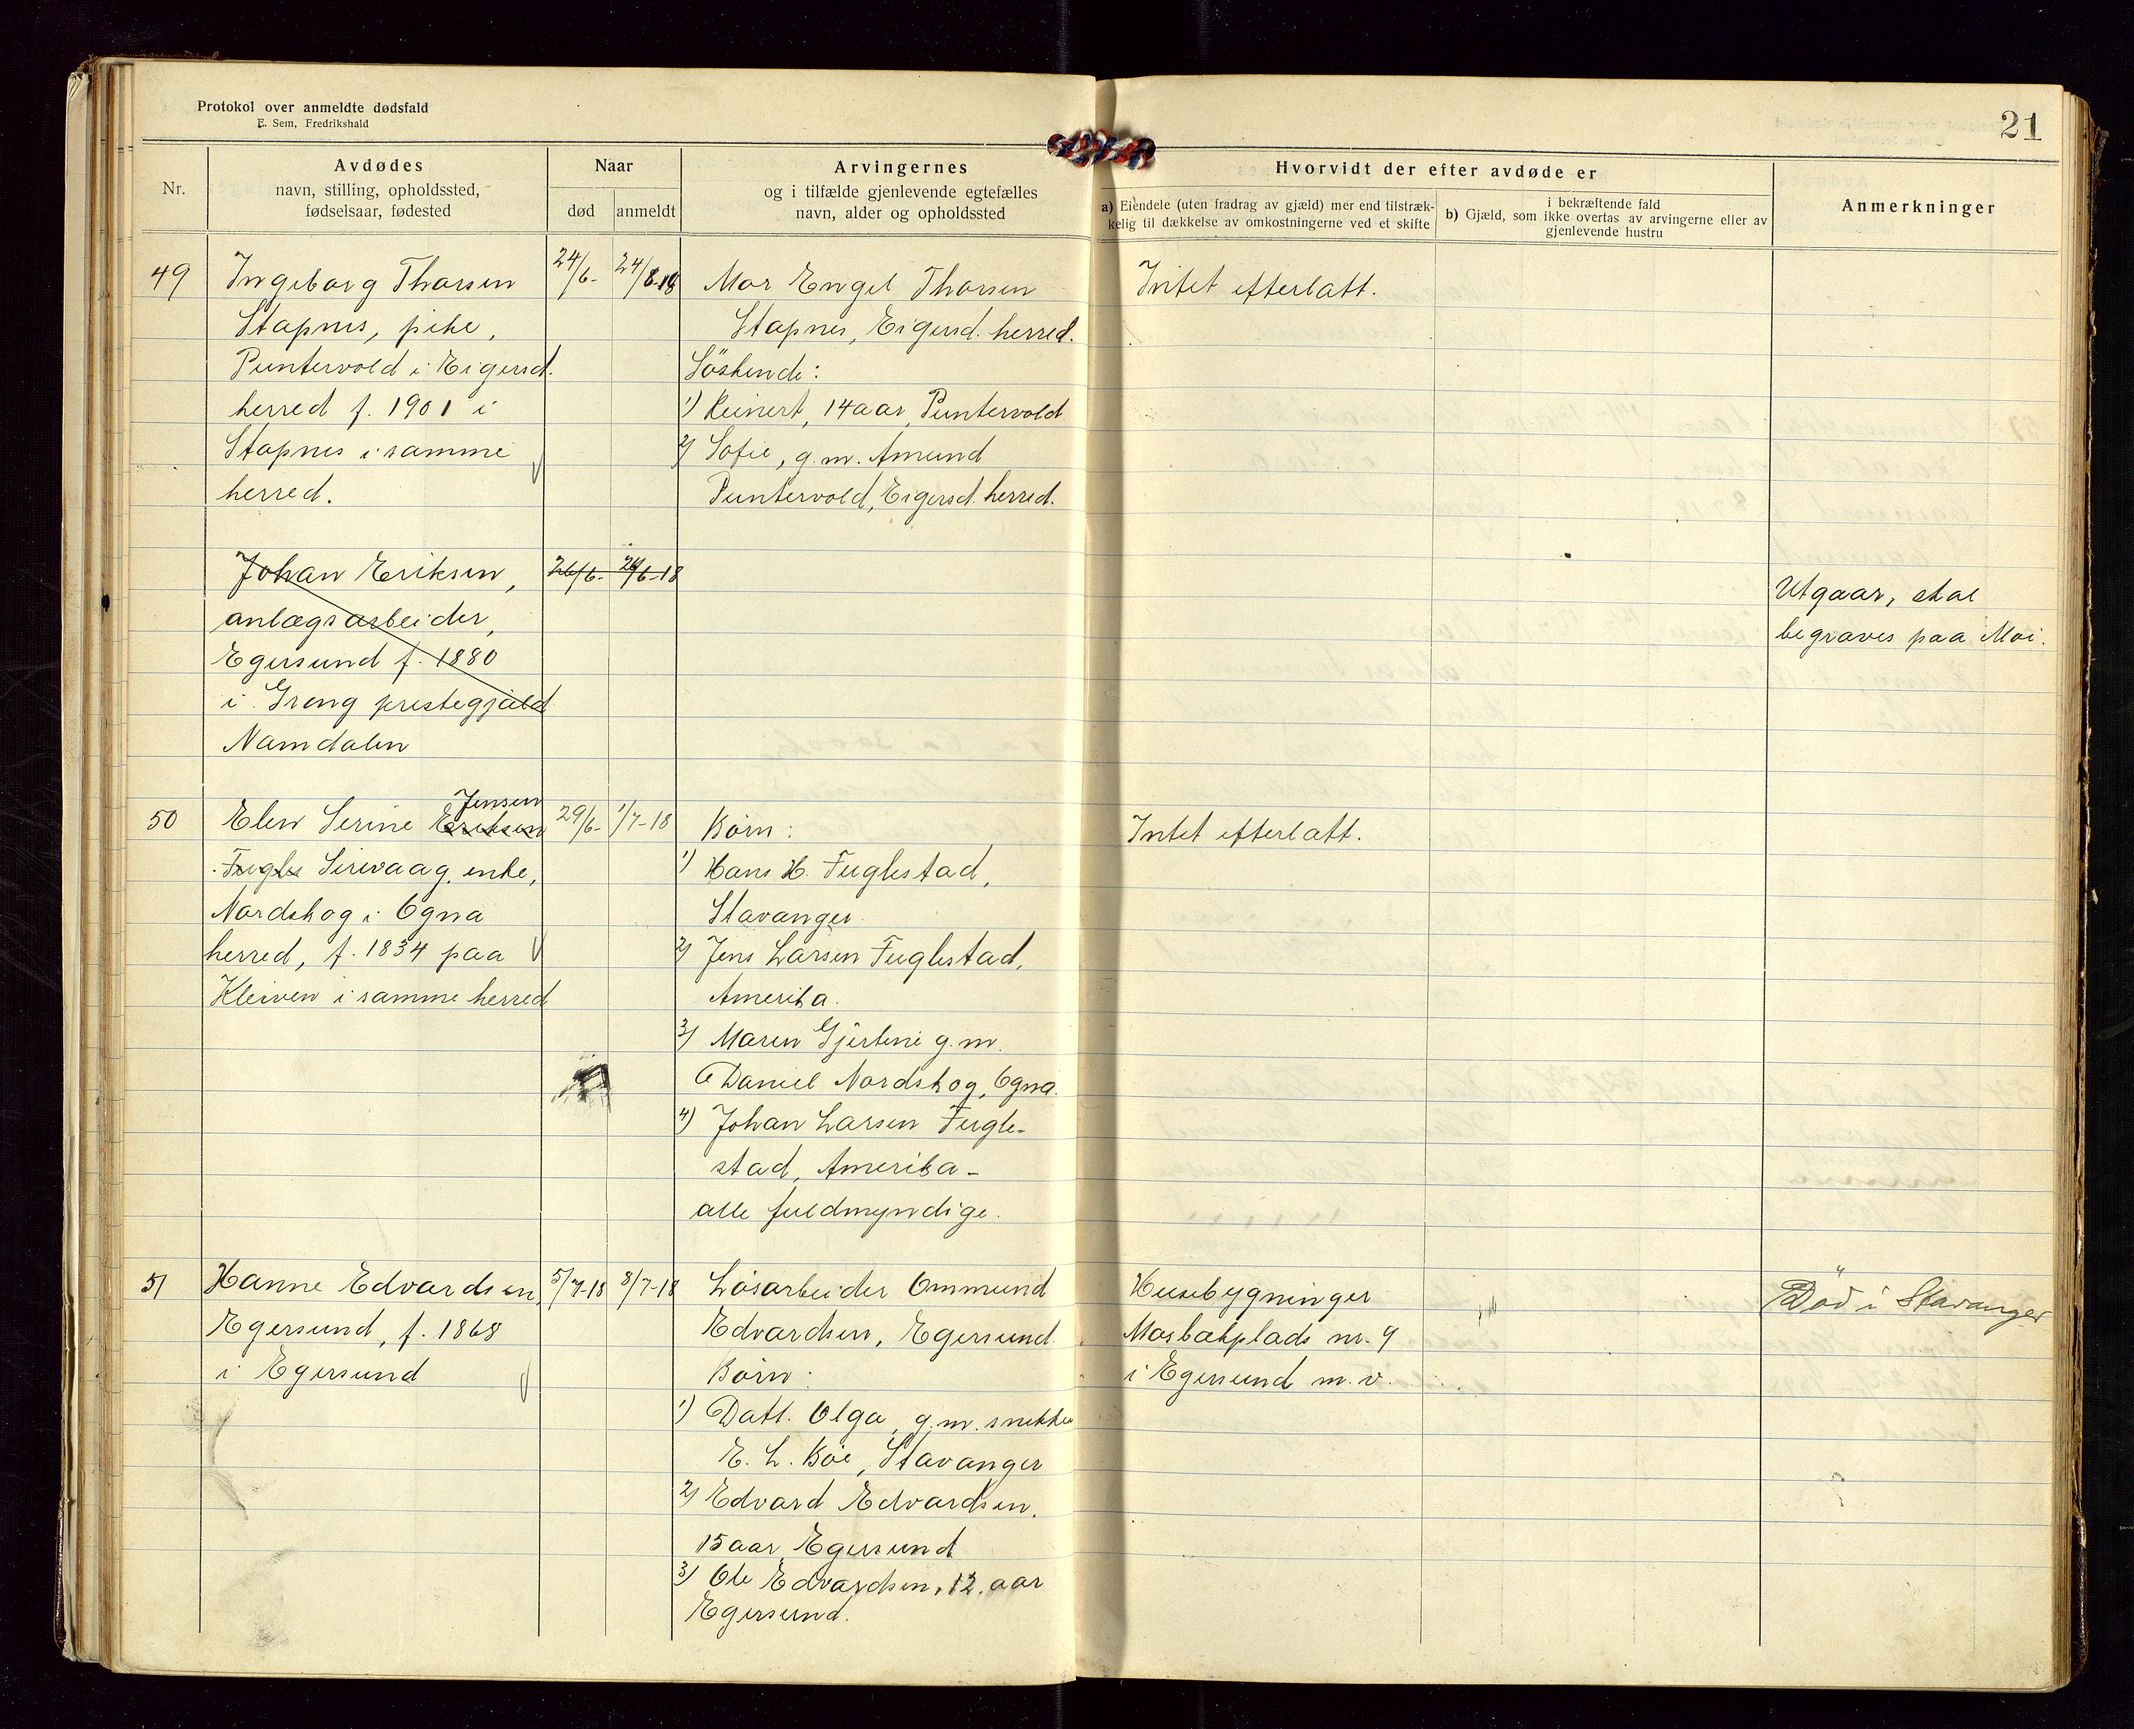 Protokol over anmeldte dødsfald
E. Sem, Fredrikshald
21
Nr.
Avdødes
navn, stilling, opholdssted,
fødselsaar, fødested
Naar
død
anmeldt
Arvingernes
og i tilfælde gjenlevende egtefælles
navn, alder og opholdssted
Hvorvidt der efter avdøde er
a) Eiendele (uten fradrag av gjæld) mer end tilstræk-
kelig til dækkelse av omkostningerne ved et skifte
i bekræftende fald
b) Gjæld, som ikke overtas av arvingerne eller av
gjenlevende hustru
Anmerkninger
49
Ingeborg Thorsen
Stapnes, pike,
Puntervold i Eigersd.
herred f. 1901 i
Stapnes i samme
herred.
24/6-
24/6-18
Mor Engel Thorsen
Stapnes, Eigersd. herred.
Söskende:
1) Reinert, 14 aar, Puntervold
2) Sofie, g.m. Amund
Puntervold, Eigersd. herred.
Intet efterlatt.
Johan Eriksen,
anlægsarbeider,
Egersund f. 1880
i Grong prestegjæld
Namdalen
26/6-
26/6-18
Utgaar, skal
begraves paa Moi.
50
Jensen
Elen Serine Eriksen
Fugles Sirevaag, enke,
Nordskog i Ogna
herred, f. 1834 paa
Kleiven i samme herred
29/6-
1/7-18
Börn:
1) Hans H. Fuglestad,
Stavanger.
2) Jens Larsen Fuglestad,
Amerika.
3) Maren Gjertine g.m.
Daniel Nordskog, Ogna.
4) Johan Larsen Fugle-
stad, Amerika-
alle fuldmyndige.
Intet efterlatt.
51
Hanne Edvardsen,
Egersund, f. 1868
i Egersund
5/7-18
8/7-18
Lösarbeider Ommund
Edvardsen, Egersund.
Börn:
1) Datt. Olga, g.m. snekker
E. L. Böe, Stavanger
2) Edvard Edvardsen,
15 aar Egersund
3) Ole Edvardsen, 12 aar
Egersund.
Husebygninger
Mosbækplads nr. 9
i Egersund m.v.
Död i Stavanger